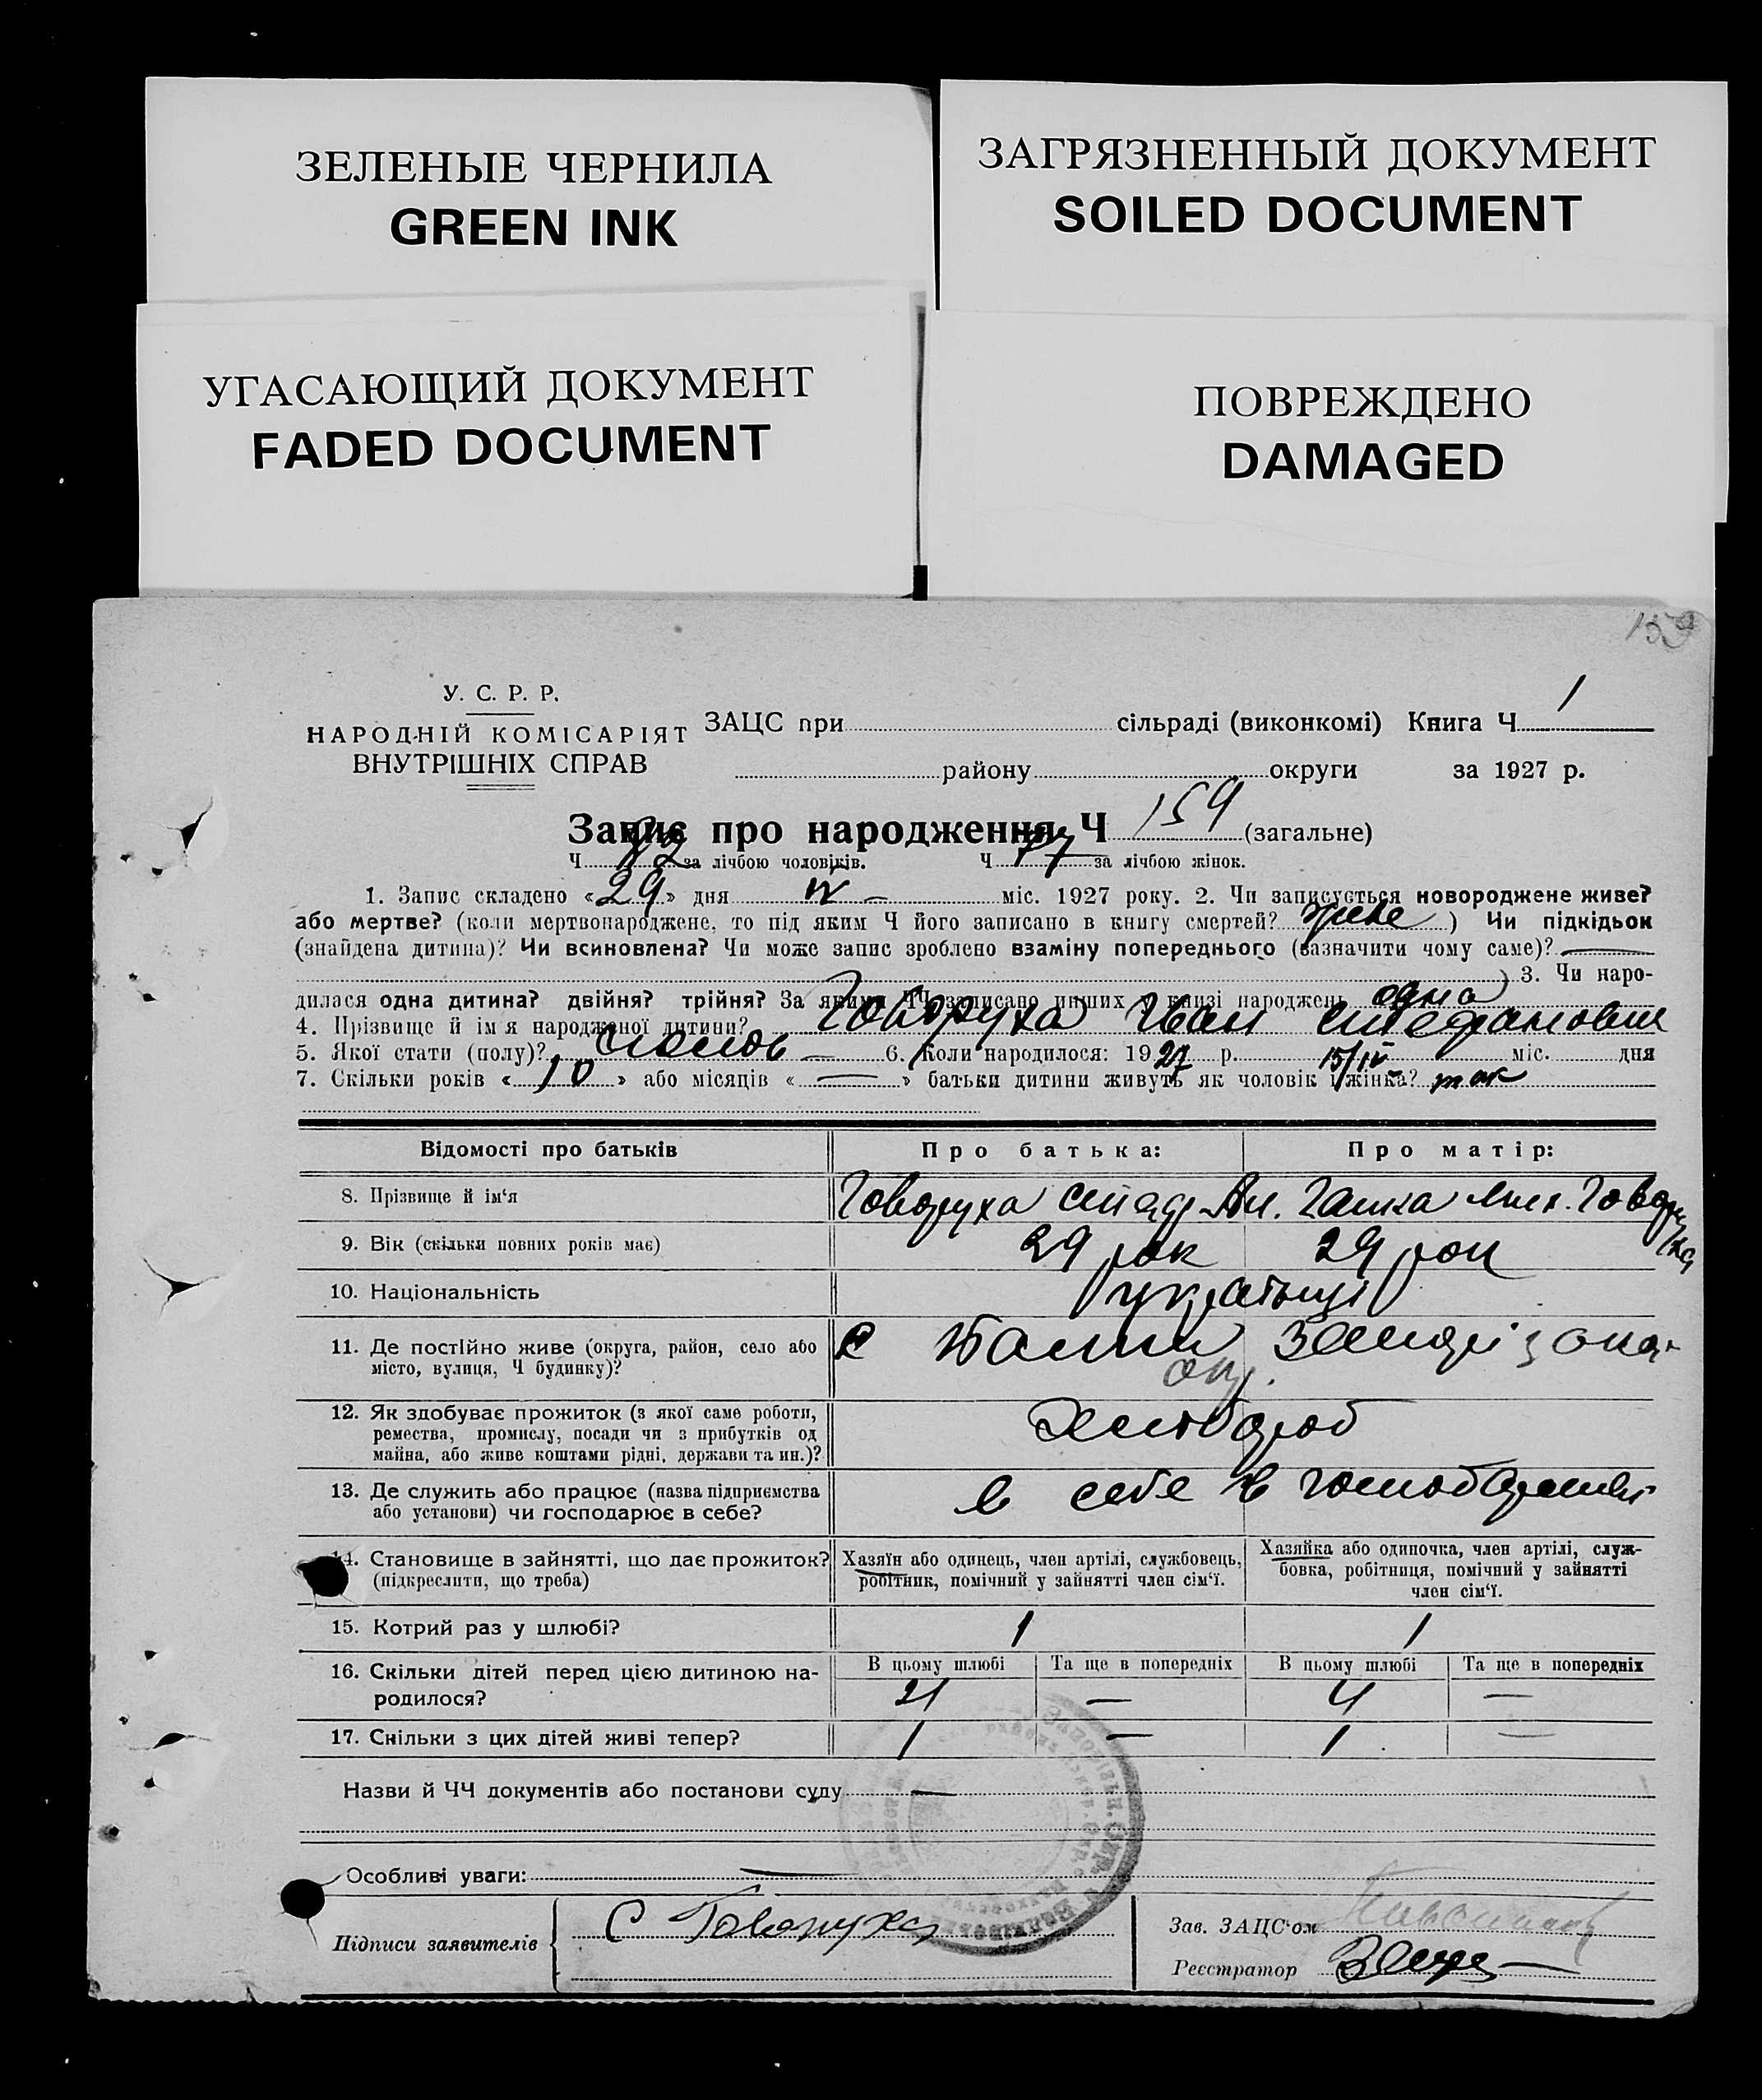 ЗЕЛЕНЫЕ ЧЕРНИЛА
GREEN INK
ЗАГРЯЗНЕННЫЙ ДОКУМЕНТ
SOILED DOCUMENT
УГАСАЮЩИЙ ДОКУМЕНТ
FADED DOCUMENT
ПОВРЕЖДЕНО
DAMAGED
159
У. С. Р. Р.
НАРОДНІЙ КОМІСАРІЯТ
ВНУТРІШНІХ СПРАВ
ЗАЦС при сільраді (виконкомі) Книга Ч. 1
району округи за 1927 р.
Запис про народження Ч 159 (загальне)
Ч 82 за лічбою чоловіків. Ч 77 за лічбою жінок.
1. Запис складено «29» дня IV міс. 1927 року. 2. Чи записується новороджене живе?
або мертве? (коли мертвонароджене, то під яким Ч його записано в книгу смертей? живе) Чи підкідьок
(знайдена дитина)? Чи всиновлена? Чи може запис зроблено взаміну попереднього (зазначити чому саме)? —
) 3. Чи наро-
дилася одна дитина? двійня? трійня? За якими ЧЧ записано инших у книзі народжень одна
4. Прізвище й ім'я народженої дитини? Говоруха Іван Стефанович
5. Якої стати (полу)? — 6. Коли народилося: 1927 р. 15/IV міс. дня
7. Скільки років «10» або місяців «—» батьки дитини живуть як чоловік і жінка? так
Відомості про батьків
Про батька:
Про матір:
8. Прізвище й ім'я
Говоруха Ан. Ганка Говоруха
9. Вік (скільки повних років має)
29 рок 29 рок
10. Національність
українці
11. Де постійно живе (округа, район, село або
місто, вулиця, Ч будинку)?
с Балки
окр.
12. Як здобуває прожиток (з якої саме роботи,
ремества, промислу, посади чи з прибутків од
майна, або живе коштами рідні, держави та ин.)?
Хлібороб
13. Де служить або працює (назва підприємства
або установи) чи господарює в себе?
в себе в
14. Становище в зайнятті, що дає прожиток?
(підкреслити, що треба)
Хазяїн або одинець, член артілі, службовець,
робітник, помічний у зайнятті член сім'ї.
Хазяйка або одиночка, член артілі, служ-
бовка, робітниця, помічний у зайнятті
член сім'ї.
15. Котрий раз у шлюбі?
1 1
16. Скільки дітей перед цією дитиною на-
родилося?
В цьому шлюбі Та ще в попередніх В цьому шлюбі Та ще в попередніх
— 4 —
17. Скільки з цих дітей живі тепер?
1 — 1 —
Назви й ЧЧ документів або постанови суду —
Особливі уваги: —
Підписи заявителів
С Говоруха
Зав. ЗАЦС'ом
Реєстратор